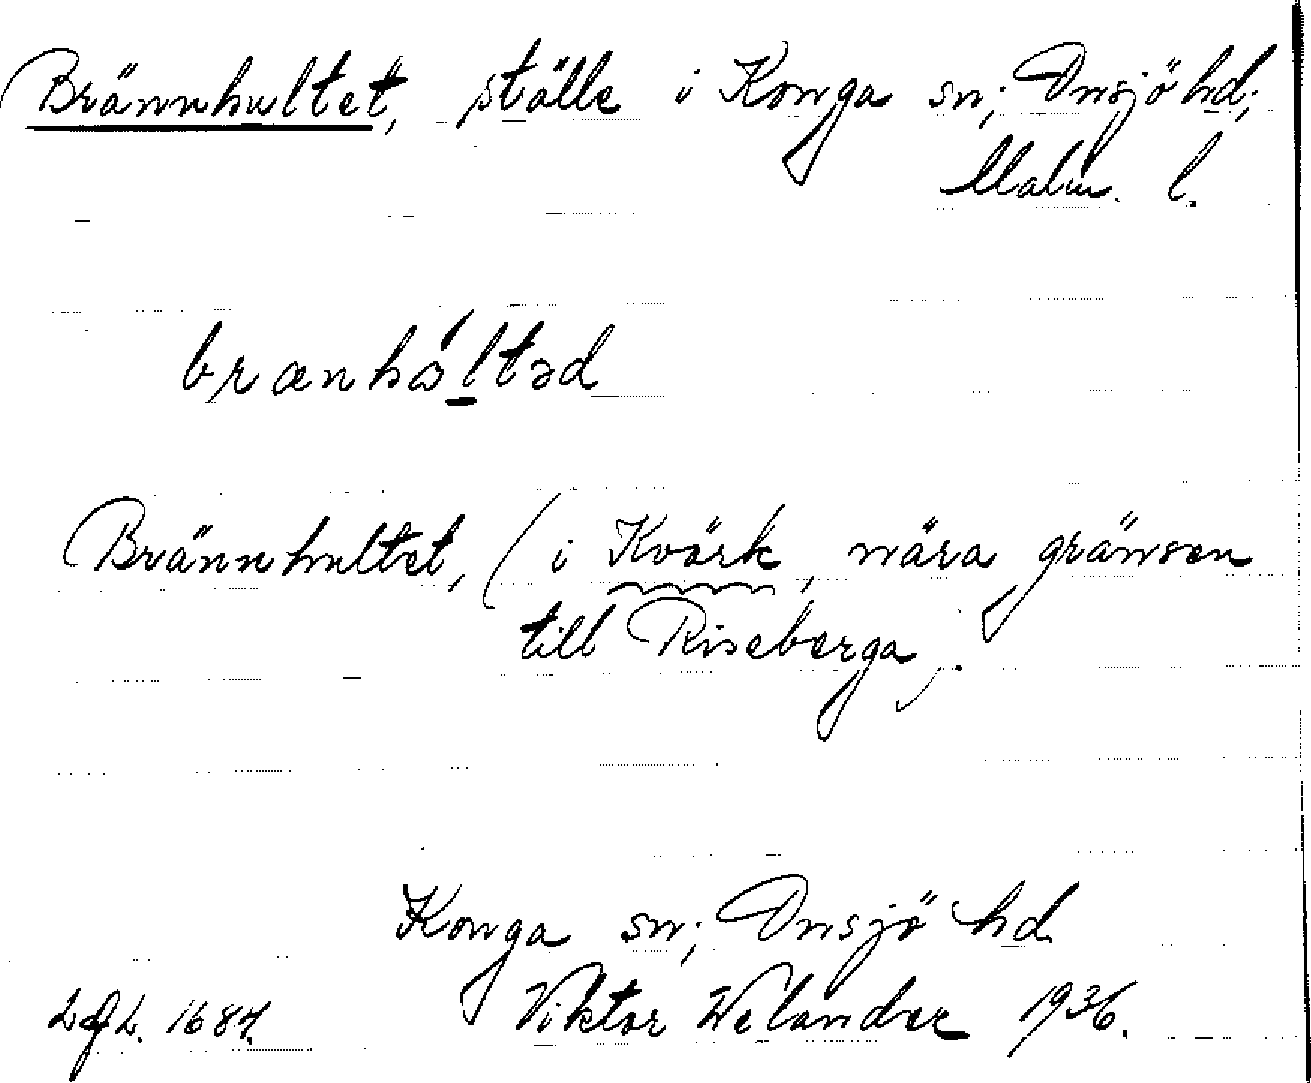 Brännhultet, ställe i Konga sn; Onsjö hd;
Malm. l.
brænhål̲təd
Brännhultet, (i Kvärk, nära gränsen
till Riseberga).
Konga sn; Onsjö hd
Viktor Welander 1936.